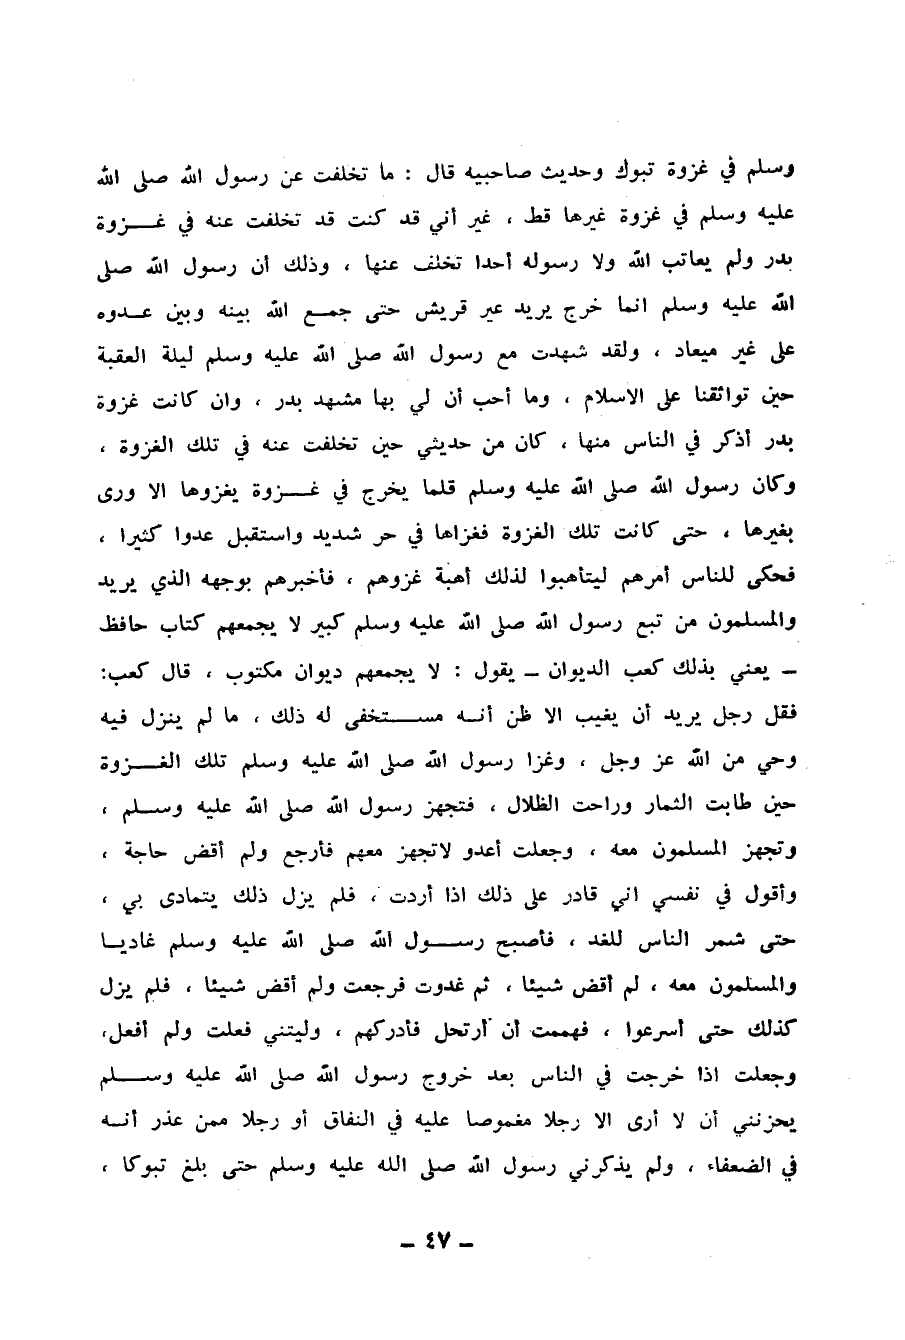 وسلم في غزوة تبوك وحديث صاحبيه قال : ما تخلفت عن رسول الله صلى الله
عليه وسلم في غزوة غيرها قط ، غير أني قد كنت قد تخلفت عنه في غـــزوة
بدر ولم يعاتب الله ولا رسوله أحدا تخلف عنها ، وذلك أن رسول الله صلى
الله عليه وسلم انما خرج يريد عير قريش حتى جمـع الله بينه وبين عـدوه
على غير ميعاد ، ولقد شهدت مع رسول الله صلى الله عليه وسلم ليلة العقبة
حين تواثقنا على الاسلام ، وما أحب أن لي بها مشهد بدر ، وان كانت غزوة
بدر أذكر في الناس منها ، كان من حديثي حين تخلفت عنه في تلك الغزوة ،
وكان رسول الله صلى الله عليه وسلم قلما يخرج في غـــزوة يغزوها الا ورى
بغيرها ، حتى كانت تلك الغزوة فغزاها في حر شديد واستقبل عدوا كثيرا ،
فحكى للناس أمرهم ليتأهبوا لذلك أهبة غزوهم ، فأخبرهم بوجهه الذي يريد
والمسلمون من تبع رسول الله صلى الله عليه وسلم كبير لا يجمعهم كتاب حافظ
ـ يعني بذلك كعب الديوان ـ يقول : لا يجمعهم ديوان مكتوب ، قال كعب:
فقل رجل يريد أن يغيب الا ظن أنـه مســتخفى له ذلك ، ما لم ينزل فيه
وحي من الله عز وجل ، وغزا رسول الله صلى الله عليه وسلم تلك الغـــزوة
حين طابت الثمار وراحت الظلال ، فتجهز رسول الله صلى الله عليه وســلم ،
وتجهز المسلمون معه ، وجعلت أغدو لاتجهز معهم فأرجع ولم أقض حاجة ،
وأقول في نفسي اني قادر على ذلك اذا أردت ، فلم يزل ذلك يتمادى بي ،
حتى شمر الناس للغد ، فأصبح رســول الله صلى الله عليه وسلم غاديـا
والمسلمون معه ، لم أقض شيئا ، ثم غدوت فرجعت ولم أقض شيئا ، فلم يزل
كذلك حتى أسرعوا ، فهممت أن أرتحل فأدركهم ، وليتني فعلت ولم أفعل،
وجعلت اذا خرجت في الناس بعد خروج رسول الله صلى الله عليه وســلم
يحزنني أن لا أرى الا رجلا مغموصا عليه في النفاق أو رجلا ممن عذر أنـه
في الضعفاء ، ولم يذكرني رسول الله صلى الله عليه وسلم حتى بلغ تبوكا ،
ـ ٤٧ ـ